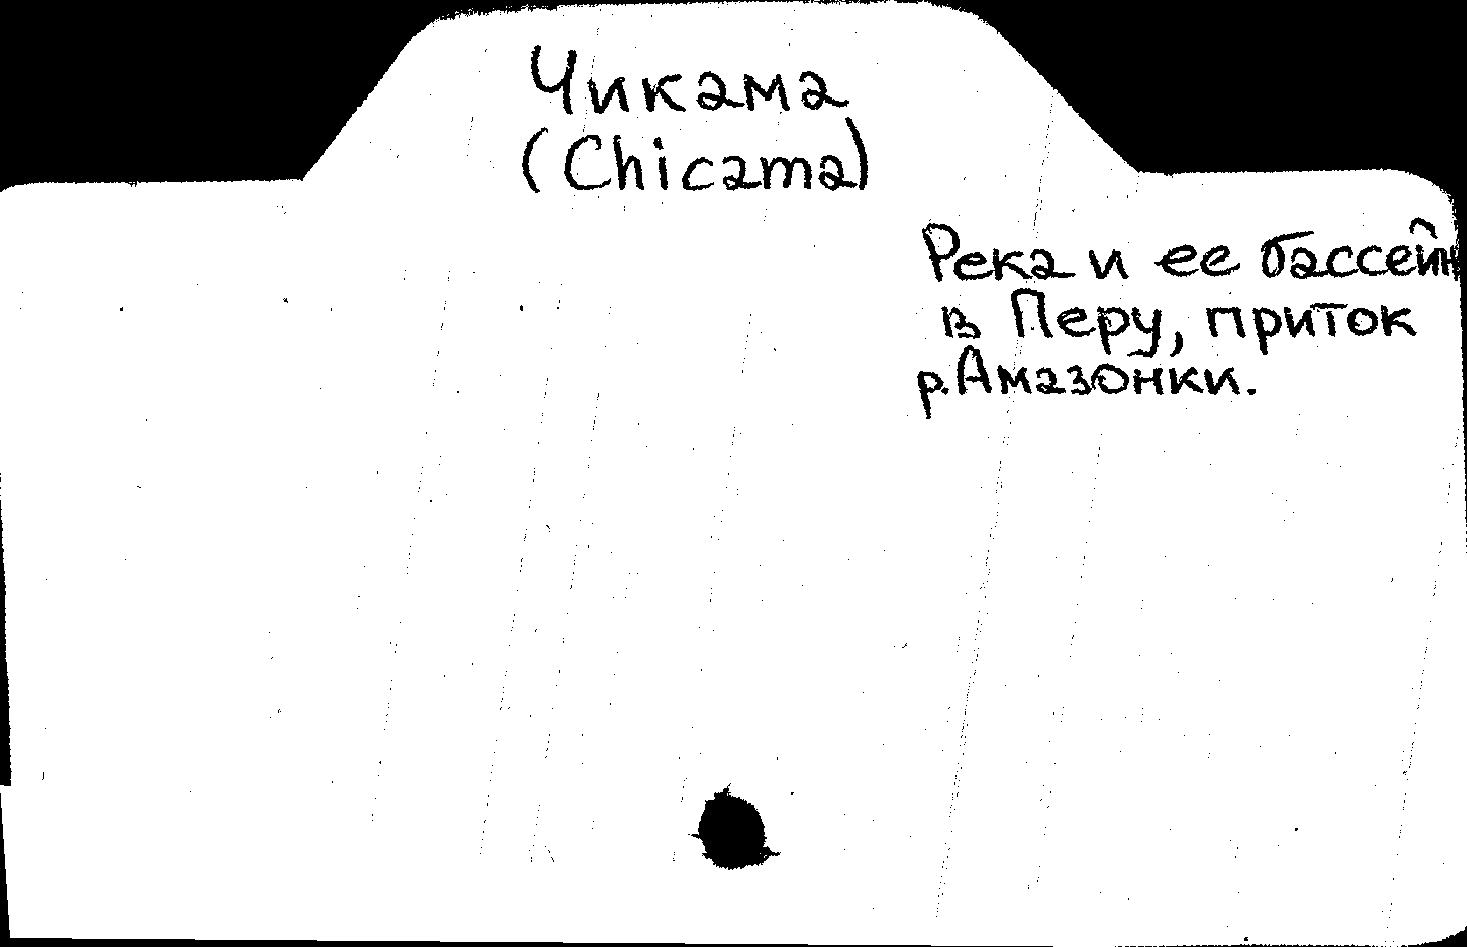 Чикама
(Chicama)
Река и ее бассейн
в Перу, приток
р. Амазонки.